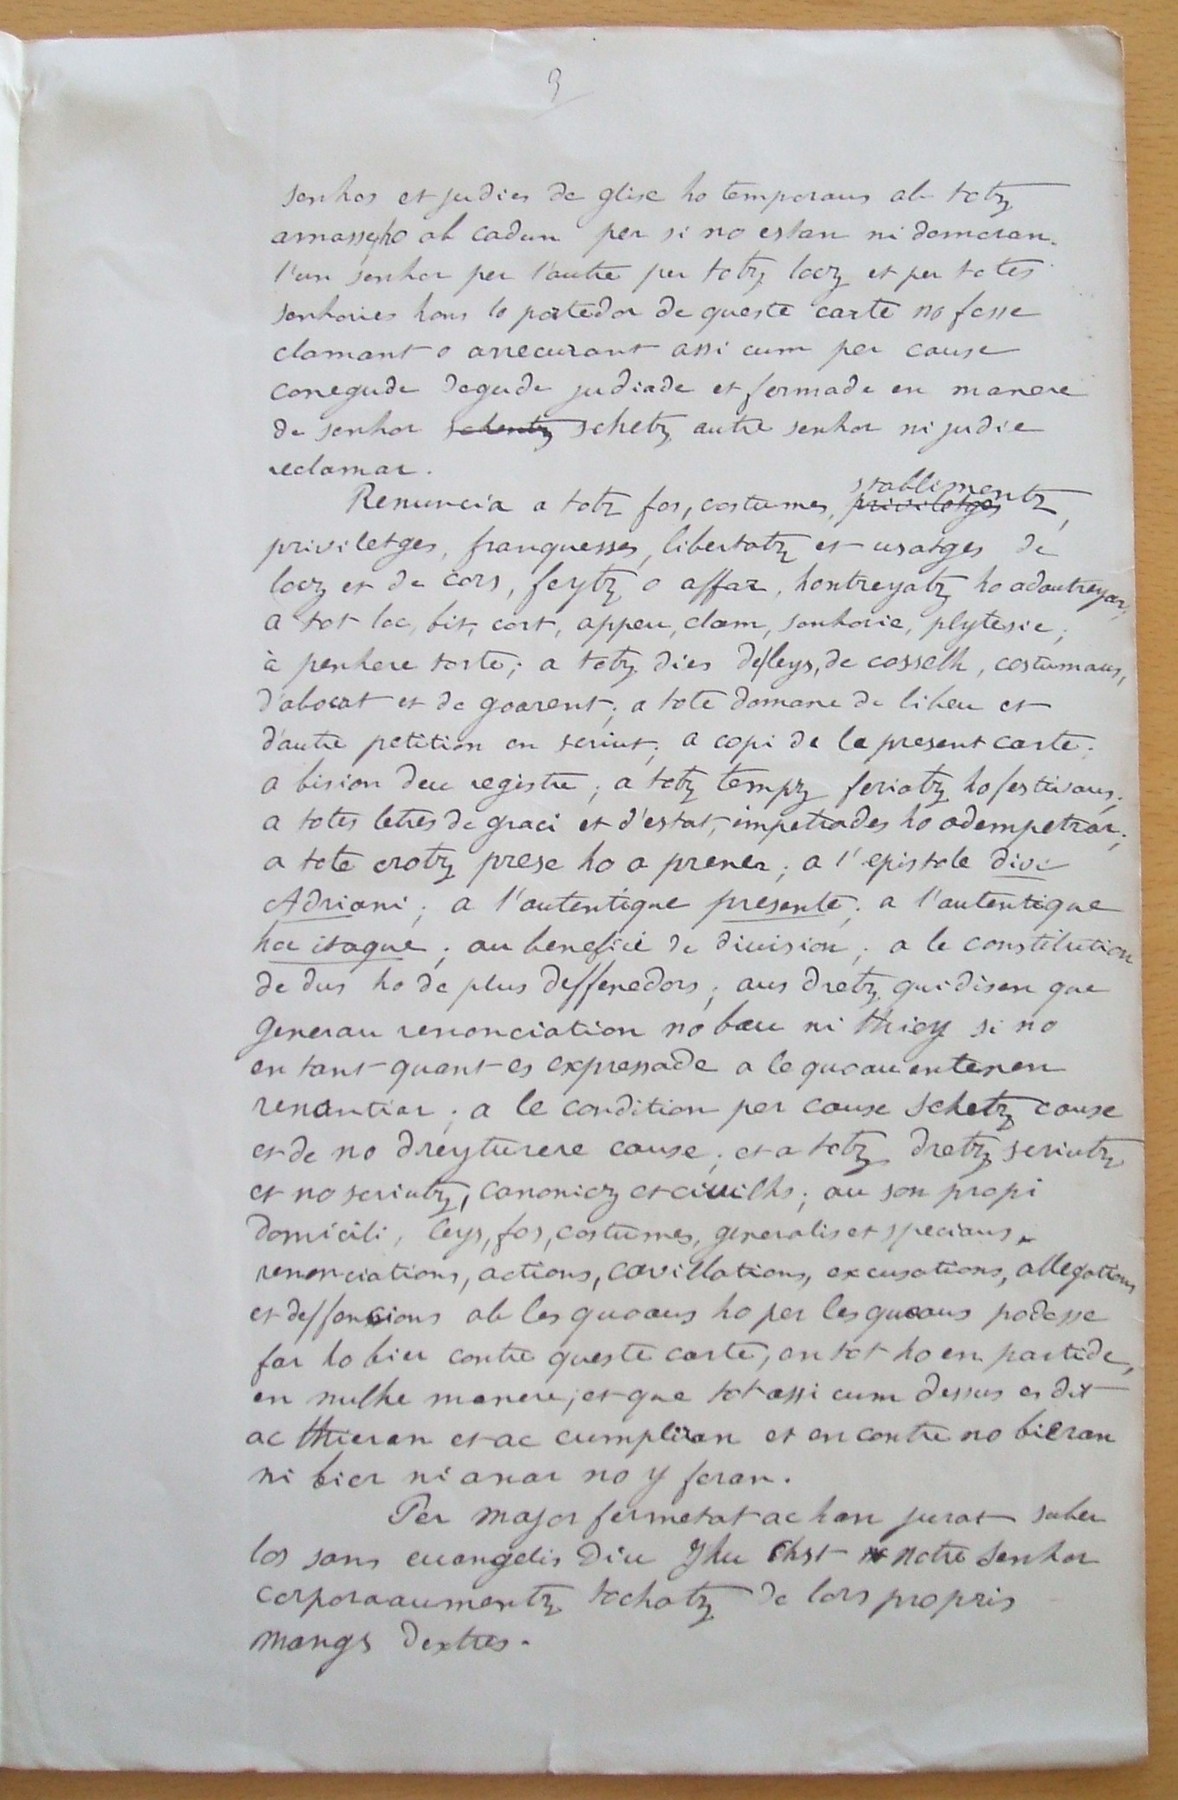 3
senhos et judies de glise ho temporaus ab totz
amasse ho ab cadun per si no estan ni demoran.
l'un senhor per l'autre per totz locz et per totes
senhories hons lo portedor de queste carte no fosse
clamant o arrecurant assi cum per cause
conegude degude judiade et fermade en manere
de senhor schentz schetz autre senhor ni judie
reclamar.
Renuncia a totz fos, costumes, priviletges stablimentz,
priviletges, franquesses, libertatz et usatges de
locz et de cors, feytz o affar, hontreyatz ho adautreyar,
a tot loc, bit, cort, appeu, clam, senhorie, pleytesie;
à penhere torte; a totz dies de leys, de cosselh, costumaus,
d'abocat et de goarent; a tote domane de libeu et
d'autre petition en scriut; a copi de le present carte;
a bision deu registre; a totz tempz feriatz ho festivaus;
a totes letres de graci et d'estat, impetrades ho adempetrar;
a tote crotz prese ho a prener; a l'epistole divi
Adriani; a l'autentique presente; a l'autentique
hoc itaque; au benefici de division; a le constitution
de dus ho de plus deffenedors; aus dretz qui disen que
generau renonciation no bau ni thiey si no
en tant quant es expressade a le quoau entenen
renuntiar; a le condition per cause schetz cause
et de no dreyturere cause; et a totz dretz scriutz
et no scriutz, canonicz et civilhs; au son propi
domicili, leys, fos, costumes, generalis et speciaus,
renonciations, actions, cavillations, excusations, allegations
et deffencions ab les quoaus ho per les quoaus podosse
far ho bier contre queste carte, en tot ho en partide,
en nulhe manere; et que tot assi cum dessus es dit
ac thieran et ac cumpliran et en contre no bieran
ni bier ni anar no y feran.
Per major fermetat ac han jurat suber
los sans euangelis Diu Jhu Chst notre Senhor
corporaaumentz tochatz de lors propris
mangs dextres.